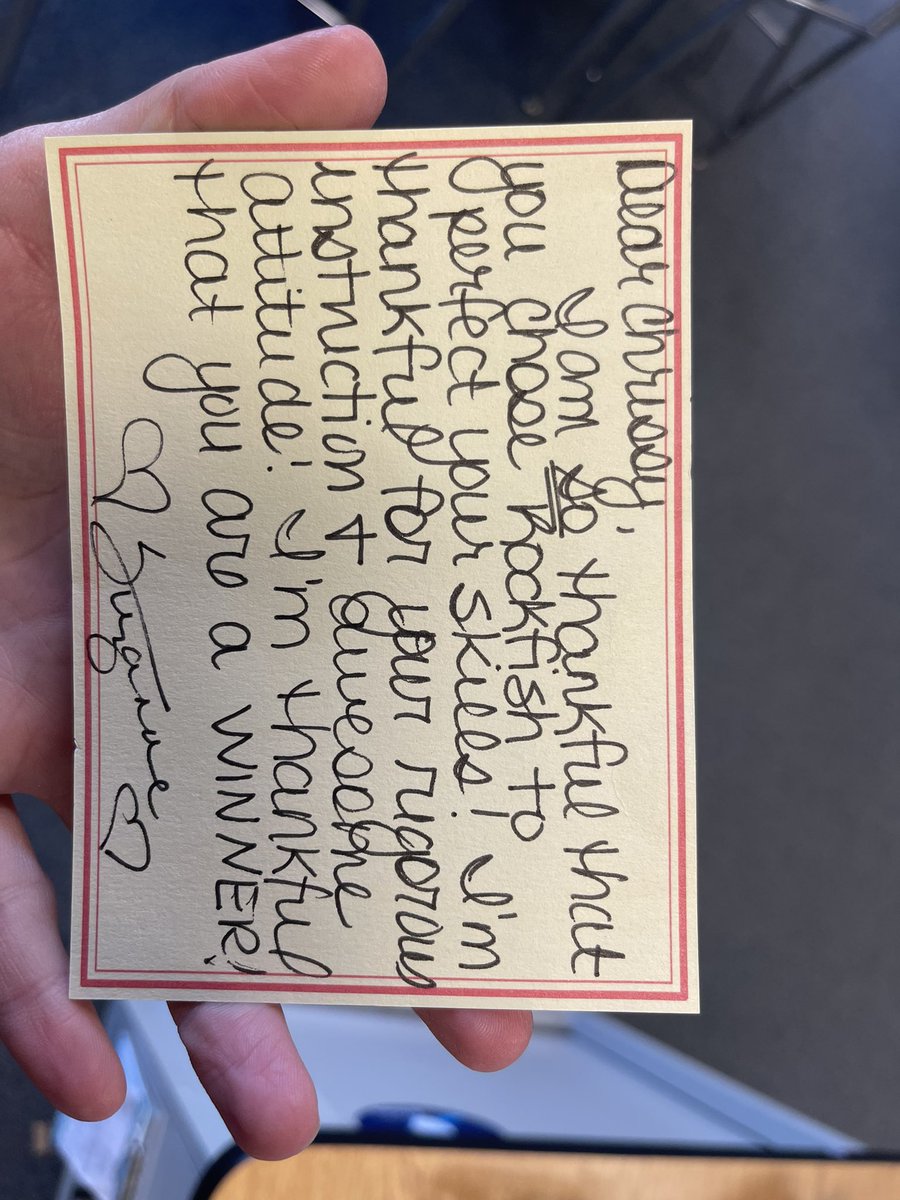 Dear Chrissy,
I am so thankful that
you chose Rockfish to
perfect your skills! I'm
thankful for your rigorous
instruction + awesome
attitude! I'm thankful
that you are a WINNER!
♡♡ Suzanne ♡